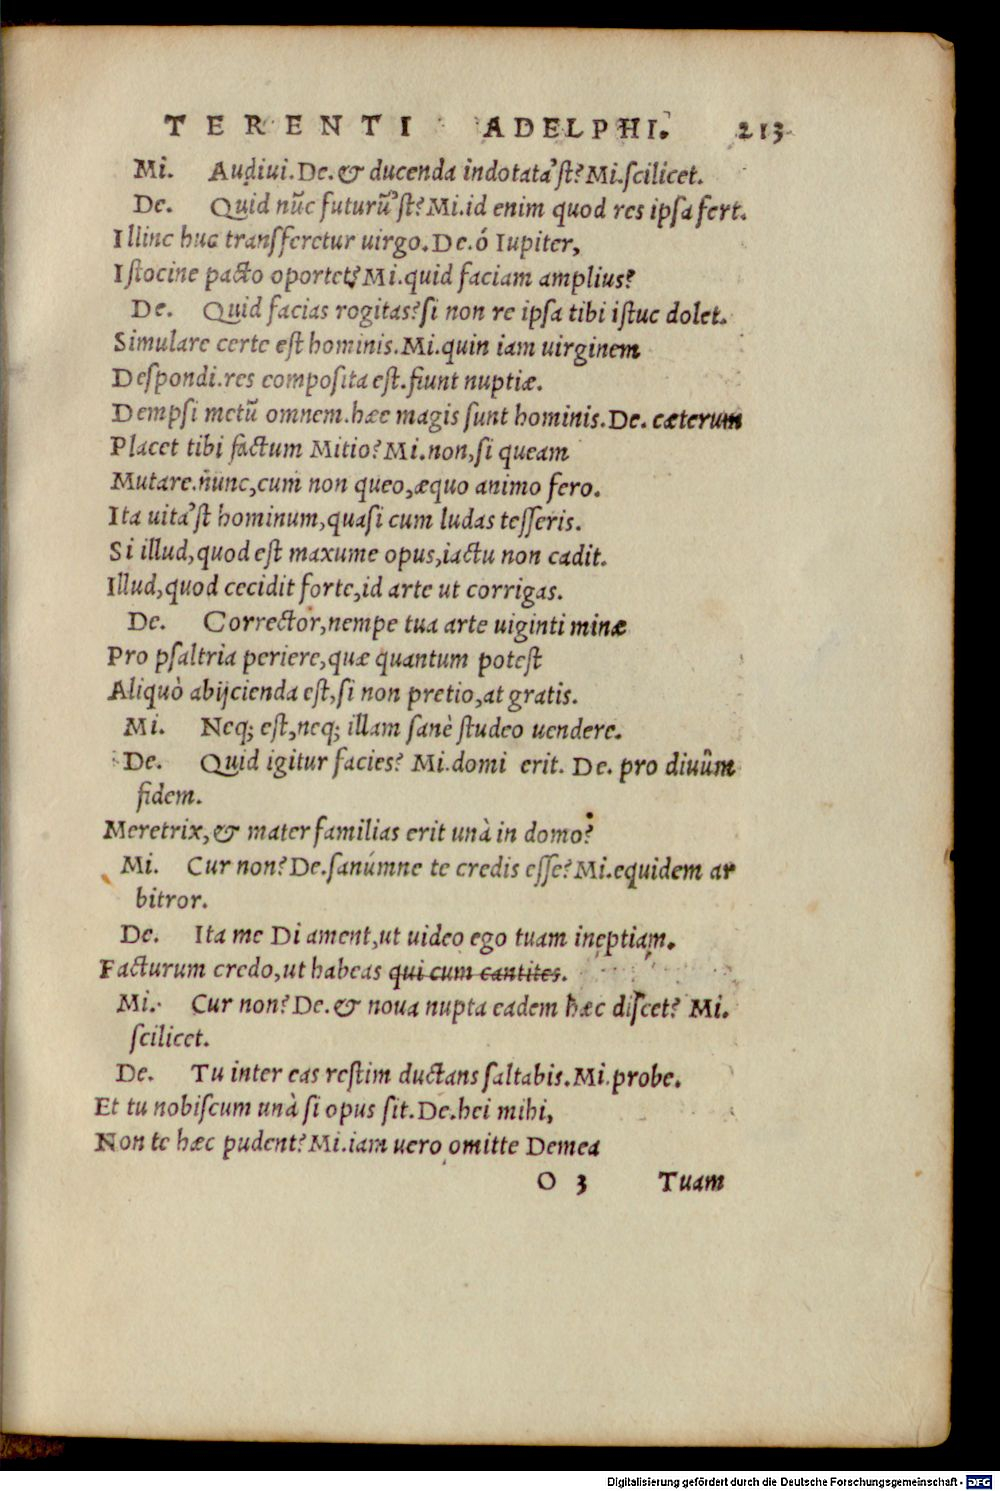 TERENTI ADELPHI. 213
Mi. Audiui. De. & ducenda indotata' st? Mi. scilicet.
De. Quid nūc futurū'st? Mi. id enim quod res ipsa fert.
Illinc huc transferetur uirgo. De. ó Iupiter,
Istocine pacto oportet? Mi. quid faciam amplius?
De. Quid facias rogitas? si non re ipsa tibi istuc dolet.
Simulare certe est hominis. Mi. quin iam uirginem
Despondi. res composita est. fiunt nuptiæ.
Dempsi metū omnem. hæc magis sunt hominis. De. cæterum
Placet tibi factum Mitio? Mi. non, si queam
Mutare. nunc, cum non queo, æquo animo fero.
Ita uita'st hominum, quasi cum ludas tesseris.
Si illud, quod est maxume opus, iactu non cadit.
Illud, quod cecidit forte, id arte ut corrigas.
De. Corrector, nempe tua arte uiginti minæ
Pro psaltria periere, quæ quantum potest
Aliquò abijcienda est, si non pretio, at gratis.
Mi. Neq; est, neq; illam sanè studeo uendere.
De. Quid igitur facies? Mi. domi erit. De. pro diuûm
fidem.
Meretrix, & mater familias erit unà in domo?
Mi. Cur non? De. sanúmne te credis esse? Mi. equidem ar
bitror.
De. Ita me Di ament, ut uideo ego tuam ineptiam.
Facturum credo, ut habeas qui cum cantites.
Mi. Cur non? De. & noua nupta eadem hæc discet? Mi.
scilicet.
De. Tu inter eas restim ductans saltabis. Mi. probe.
Et tu nobiscum unà si opus sit. De. hei mihi,
Non te hæc pudent? Mi. iam uero omitte Demea
O 3 Tuam
Digitalisierung gefördert durch die Deutsche Forschungsgemeinschaft - DFG